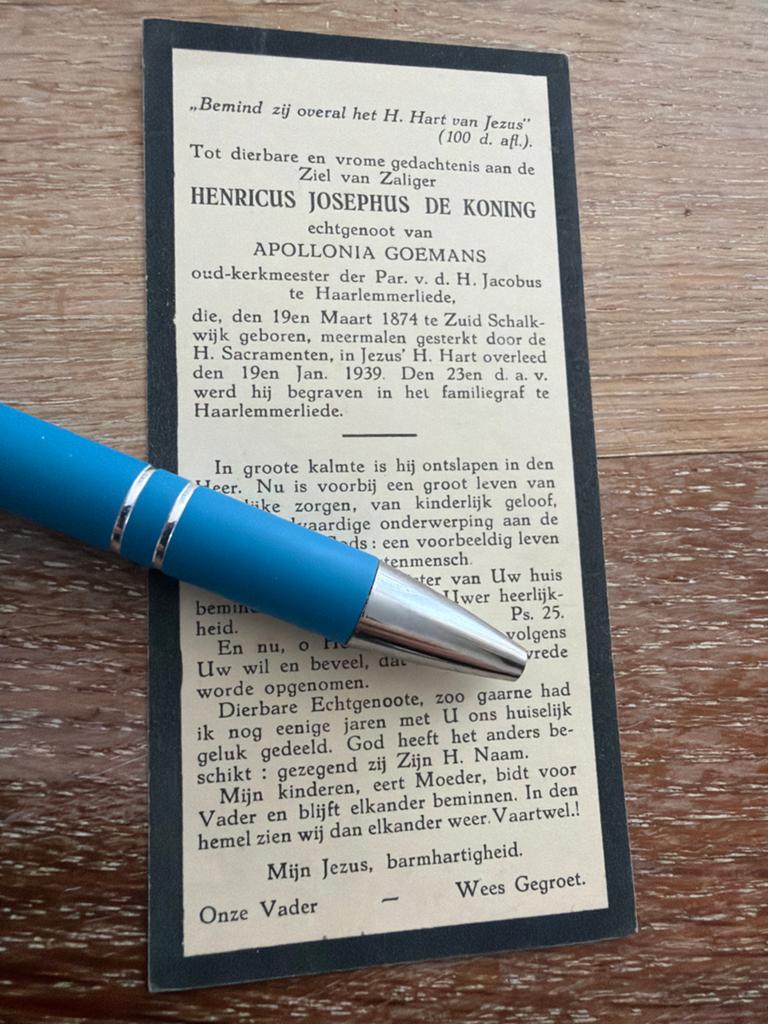 „Bemind zij overal het H. Hart van Jezus"
(100 d. afl.).
Tot dierbare en vrome gedachtenis aan de
Ziel van Zaliger
HENRICUS JOSEPHUS DE KONING
echtgenoot van
APOLLONIA GOEMANS
oud-kerkmeester der Par. v. d. H. Jacobus
te Haarlemmerliede,
die, den 19en Maart 1874 te Zuid Schalk-
wijk geboren, meermalen gesterkt door de
H. Sacramenten, in Jezus' H. Hart overleed
den 19en Jan. 1939. Den 23en d. a. v.
werd hij begraven in het familiegraf te
Haarlemmerliede.
In groote kalmte is hij ontslapen in den
Heer. Nu is voorbij een groot leven van
zorgen, van kinderlijk geloof,
onderwerping aan de
: een voorbeeldig leven
van Uw huis
Uwer heerlijk-
heid. Ps. 25.
En nu, o volgens
Uw wil en beveel, vrede
worde opgenomen.
Dierbare Echtgenoote, zoo gaarne had
ik nog eenige jaren met U ons huiselijk
geluk gedeeld. God heeft het anders be-
schikt : gezegend zij Zijn H. Naam.
Mijn kinderen, eert Moeder, bidt voor
Vader en blijft elkander beminnen. In den
hemel zien wij dan elkander weer. Vaartwel.!
Mijn Jezus, barmhartigheid.
Onze Vader — Wees Gegroet.